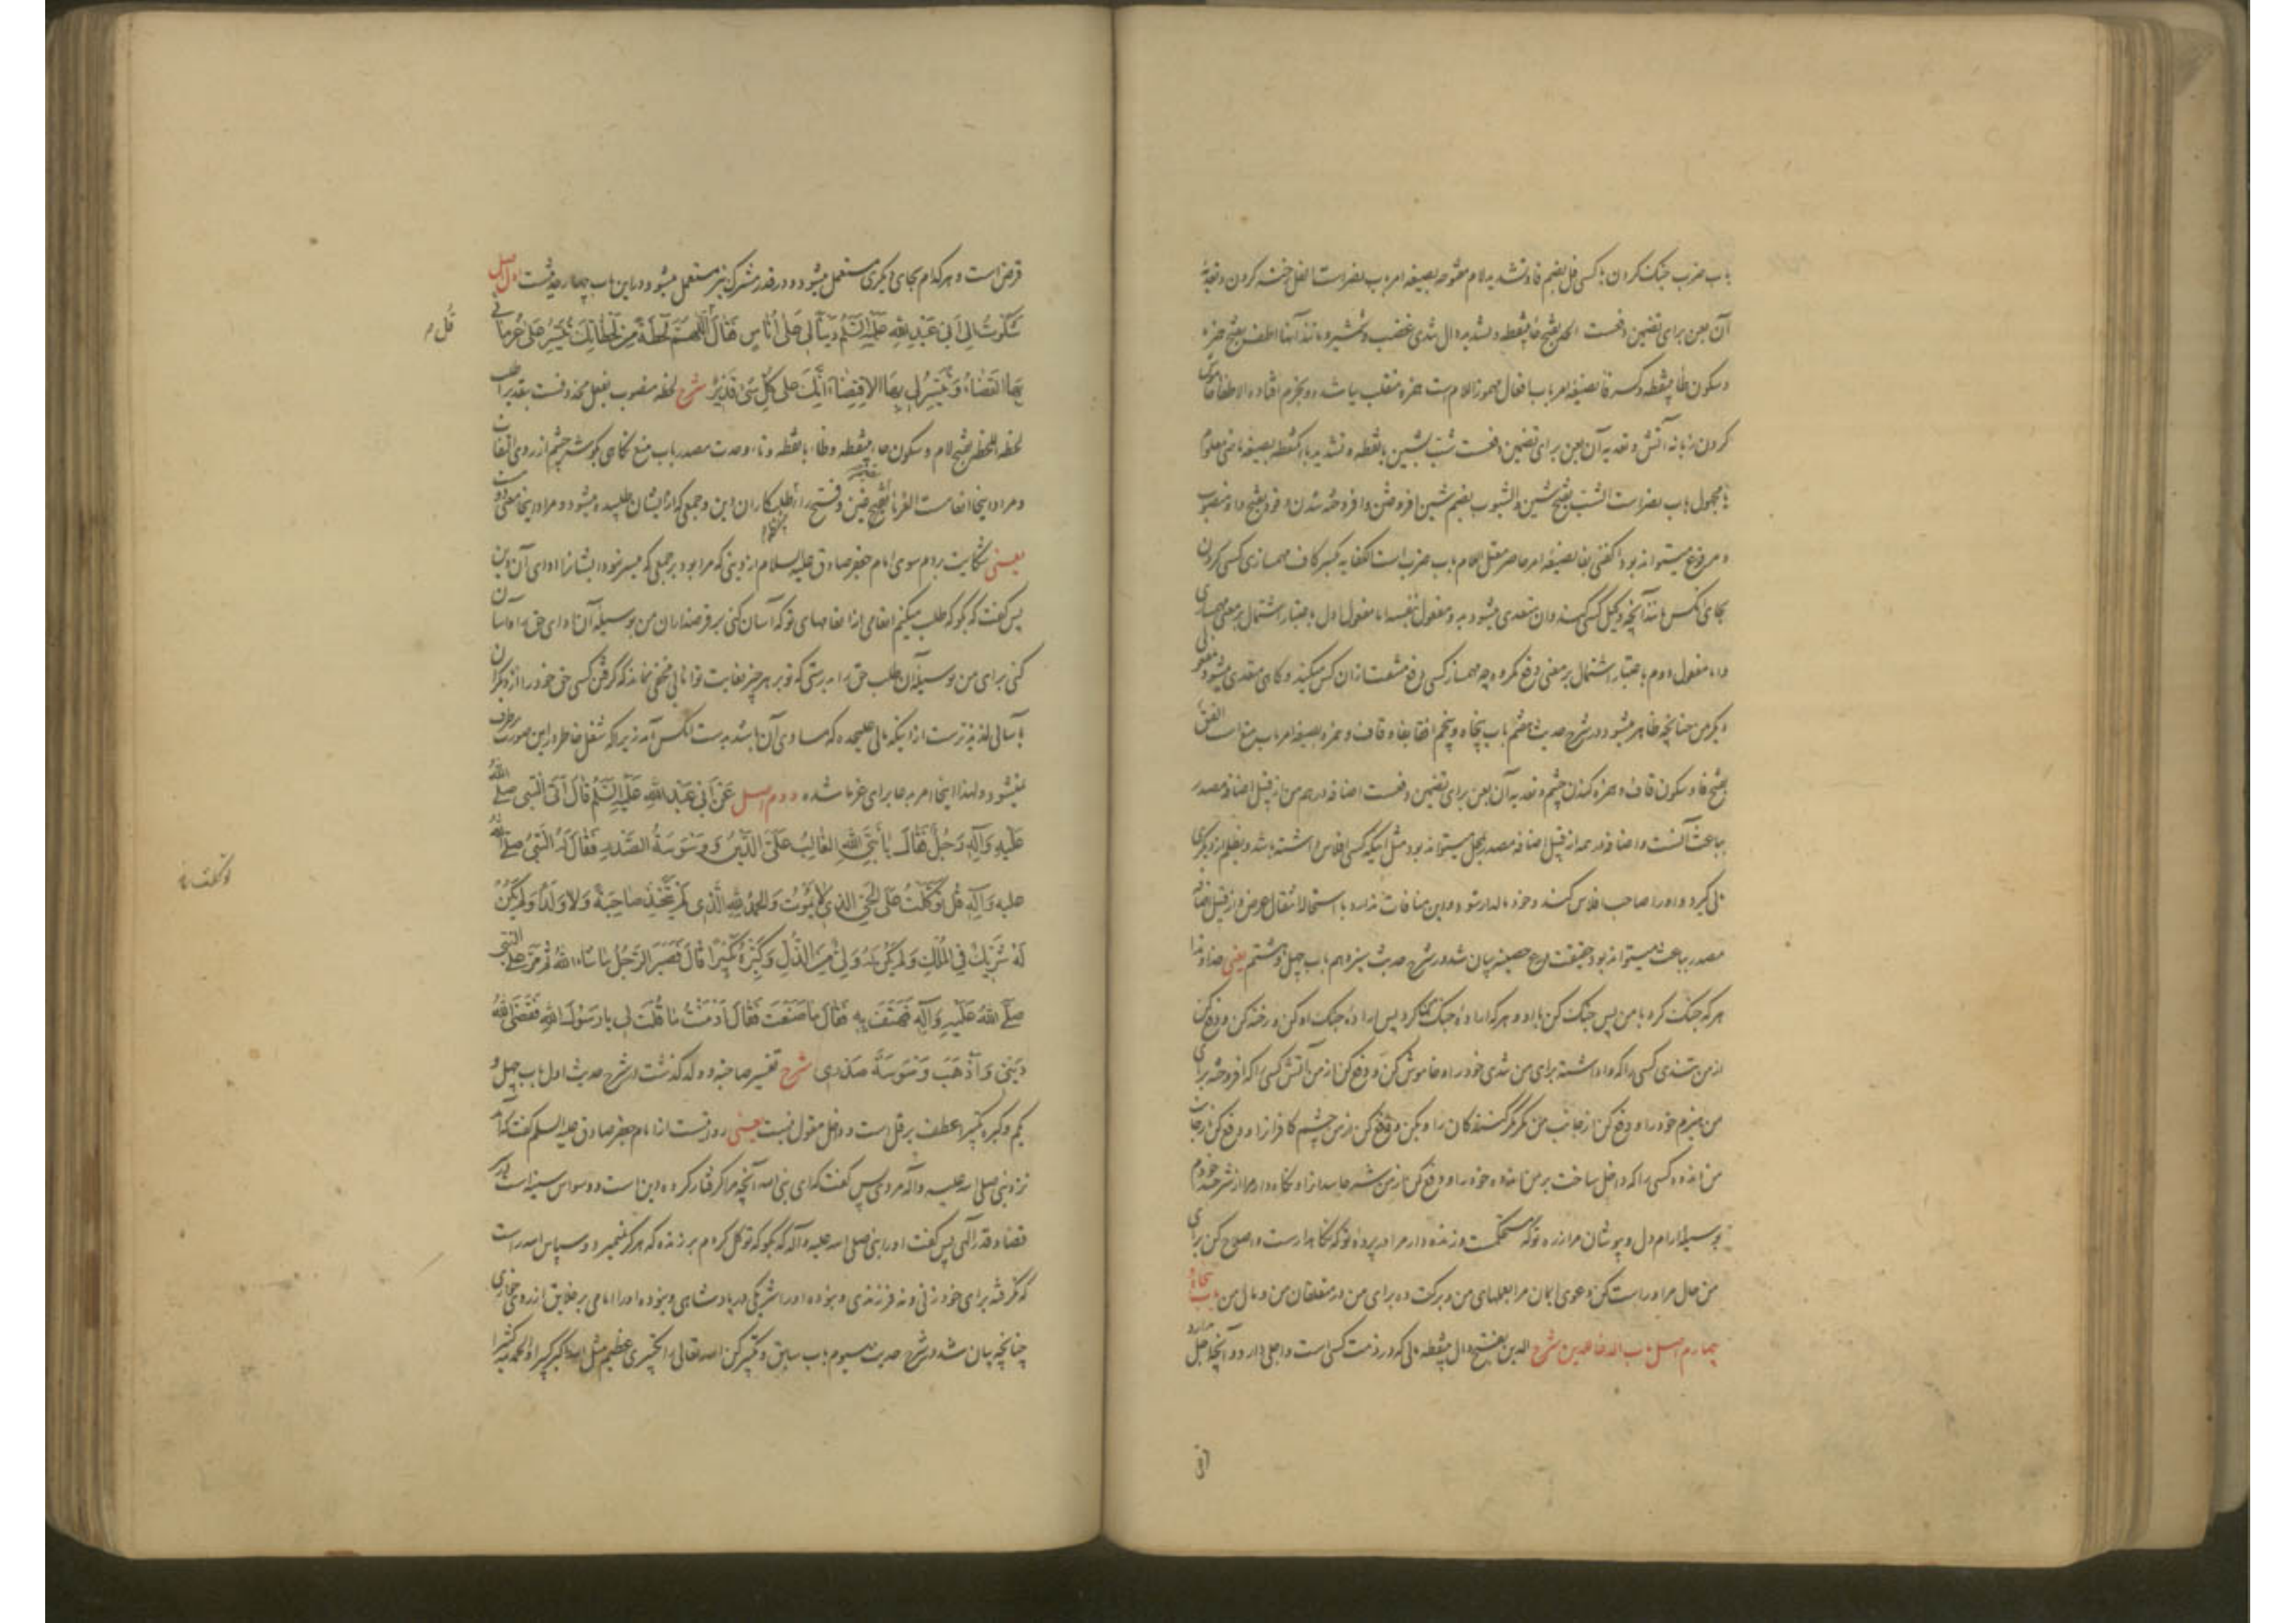 باب ضرب جنک کردن با کسی فل بضم فا و تشدید لام مفتوحه بصیغه امر باب نصر است الفل رخنه کردن و تعدیهٔ
آن بعن برای تضمین دفعست الحد بفتح حاء بینقطه و تشدید دال تندی غضب و شمشیر و مانند آنها اطف بفتح همزه
و سکون طاء بینقطه و کسر فا بصیغه امر باب افعال مهموز اللام است همزه منقلب بیا شده و بجزم افتاده الاطفا خاموش
کردن زبانه آتش و تعدیه آن بعن برای تضمین دفعست شب بشین بانقطه و تشدید باء یکنقطه بصیغه ماضی معلوم
یا مجهول باب نصر است الشب بفتح شین و الشبوب بضم شین افروختن و افروخته شدن وقود بفتح واو منصوب
و مرفوع میتواند بود اکفنی بفا بصیغه امر حاضر معتل اللام باب ضرب است الکفایه بکسر کاف مهمسازی کسی کردن
بجای آنکس مانند آنچه وکیل کسی کند و آن متعدی میشود بدو مفعول بنفسه اما مفعول اول باعتبار اشتمال بر معنی مهمسازی
و اما مفعول دوم باعتبار اشتمال بر معنی دفع مکروه چه مهمساز کسی دفع مشقت از آن کس میکند و کاهی متعدی میشود بمفعولی
دیکر من چنانچه ظاهر میشود در شرح حدیث هشتم باب پنجاه و پنجم افقأ بفا و قاف و همزه بصیغه امر باب منع است الفقئ
بفتح فا و سکون قاف و همزه کندن چشم و تعدیه آن بعن برای تضمین دفعست اضافه در هم من از قبیل اضافه مصدر
بباعث آنست و اضافه در همه از قبیل اضافه مصدر بمحل میتواند بود مثل اینکه کسی افلاس داشته باشد و بظلم از دیکری
مالی کیرد و او را صاحب افلاس کند و خود مالدار شود و این منافات ندارد با استحالهٔ انتقال عرض و از قبیل اضافه
مصدر بباعث میتواند بود حقیقت درع حصینه بیان شد در شرح حدیث سیزدهم باب چهل و هشتم یعنی خداوندا
هر که جنک کرد با من پس جنک کن با او و هر که ارادهٔ جنک من کرد پس ارادهٔ جنک او کن و رخنه کن و دفع کن
از من تندی کسی را که واداشته برای من تندی خود را و خاموش کن و دفع کن از من آتش کسی را که افروخته برای
من هیزم خود را و دفع کن از جانب من مکر مکر کنندکان را و بکن و دفع کن از من چشم کافران را و دفع کن از جانب
من اندوه کسی را که داخل ساخت بر من اندوه خود را و دفع کن از من شر حاسدان را و نکاه دار مرا از شر خود
بوسیله آرام دل و بپوشان مرا زره تو که مستحکمست و زنده دار مرا در پرده تو که نکاهدارست و اصلاح کن برای
من حال مرا و راست کن دعوی ایمان مرا بعملهای من و برکت ده برای من در متعلقان من و مال من باب پنجاه
چهارم اصل باب الدعا للدین شرح الدین بفتح دال بینقطه مالی که در ذمت کسی است و اجلی دارد و آنچه اجل ندارد
قرض است و هر کدام بجای دیکری مستعمل میشود و در قدر مشترک نیز مستعمل میشود و در این باب چهار حدیثست اول اصل
شَکَوْتُ اِلی اَبی عَبْدِ اللهِ عَلَیْهِ السَّلَمُ دَیْناً لی عَلی اُناسٍ فَقالَ اَللّهُمَّ لَحْظَةً مِنْ لَحَظاتِكَ تُیَسِّرُ عَلی غُرَمائی
قُل م
بِهَا القَضاءَ وَتُیَسِّرُ لی بِهَا الاِقتِضاءَ اِنَّكَ عَلی کُلِّ شَیْءٍ قَدیرٌ شرح لحظه منصوب بفعل محذوفست بتقدیر اطلب
لحظه اللحظه بفتح لام و سکون حاء بینقطه و ظاء بانقطه و تاء وحدت مصدر باب منع نکاهی بکوشه چشم از روی التفات
و مراد اینجا انعامست الغرماء بضم غین و فتح راء طلبکاران دین و جمعی که از ایشان طلبیده میشود و مراد اینجا معنی دومست
یعنی شکایت بردم سوی امام جعفر صادق علیه السلام از دینی که مرا بود بر جمعی که میسر نبود ایشانرا ادای آن دین
پس کفت که بکو که طلب میکنم انعامی از انعامهای تو که آسان کنی بر قرضداران من بوسیله آن ادای حق را و آسان
کنی برای من بوسیله آن طلب حق را بدرستی که تو بر هر چیز بغایت توانایی مخفی نماند که کرفتن کسی حق خود را از دیکران
بآسانی لذیذترست از اینکه مالی علیحده که مساوی آن باشد بدست آنکس آید زیرا که شغل خاطر در این صورت برطرف
نمیشود و لهذا اینجا امر بدعا برای غرما شده دوم اصل عَنْ اَبی عَبْدِ اللهِ عَلَیْهِ السَّلَمُ قالَ اَتَی النَّبِیَّ صلی اللهُ
عَلَیْهِ وَآلِهِ رَجُلٌ فَقالَ یا نَبِیَّ اللهِ الغالِبُ عَلَیَّ الدَّیْنُ وَ وَسْوَسَةُ الصَّدْرِ فَقالَ لَهُ النَّبِیُّ صلی الله
علیه وَآلِهِ قُلْ تَوَکَّلْتُ عَلَی الحَیِّ الَّذی لا یَمُوتُ وَالحَمْدُ لِلهِ الَّذی لَمْ یَتَّخِذْ صاحِبَةً وَلا وَلَداً وَلَمْ یَکُنْ
لَهُ شَریكٌ فِی المُلْكِ وَلَمْ یَکُنْ لَهُ وَلِیٌّ مِنَ الذُّلِّ وَکَبِّرْهُ تَکْبیراً قالَ فَصَبَرَ الرَّجُلُ ما شاءَ اللهُ ثُمَّ مَرَّ عَلَی النَّبِیِّ
صَلَّی اللهُ عَلَیْهِ وَآلِهِ فَهَتَفَ بِهِ فَقالَ ما صَنَعْتَ فَقالَ اَدْمَنْتُ ما قُلْتَ لی یا رَسُولَ اللهِ فَقَضَی اللهُ
دَیْنی وَ اَذْهَبَ وَسْوَسَةَ صَدْری شرح تفسیر صاحبة و ولد کذشت در شرح حدیث اول باب چهل و
یکم و کبره تکبیرا عطف بر قل است و داخل مقول نیست یعنی روایتست از امام جعفر صادق علیه السلم کفت که آمد
نزد نبی صلی الله علیه و آله مردی پس کفت که ای نبی الله آنچه مرا کرفتار کرده دین است و وسواس سینه است در
قضا و قدر الهی پس کفت او را نبی صلی الله علیه و آله که بکو که توکل کردم بر زنده که هرکز نمیمیرد و سپاس الله راست
که نکرفته برای خود زنی و نه فرزندی و نبوده او را شریکی در پادشاهی و نبوده او را امامی بر خلایق از روی خواری
چنانچه بیان شد در شرح حدیث سیوم باب سابق و تکبیر کن الله تعالی را تکبیری عظیم مثل الله اکبر کبیرا و الحمد لله کثیرا